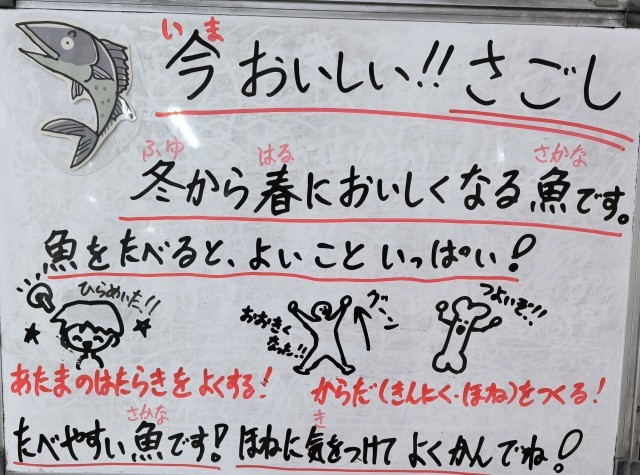 いま
今おいしい!! さごし
ふゆ はる さかな
冬から春においしくなる魚です。
魚をたべると、よいこといっぱい!
ひらめいた!!
おおきくなった!!
グーン
つよいぞ!!
あたまのはたらきをよくする!
からだ(きんにく・ほね)をつくる!
さかな き
たべやすい魚です! ほねに気をつけてよくかんでね!